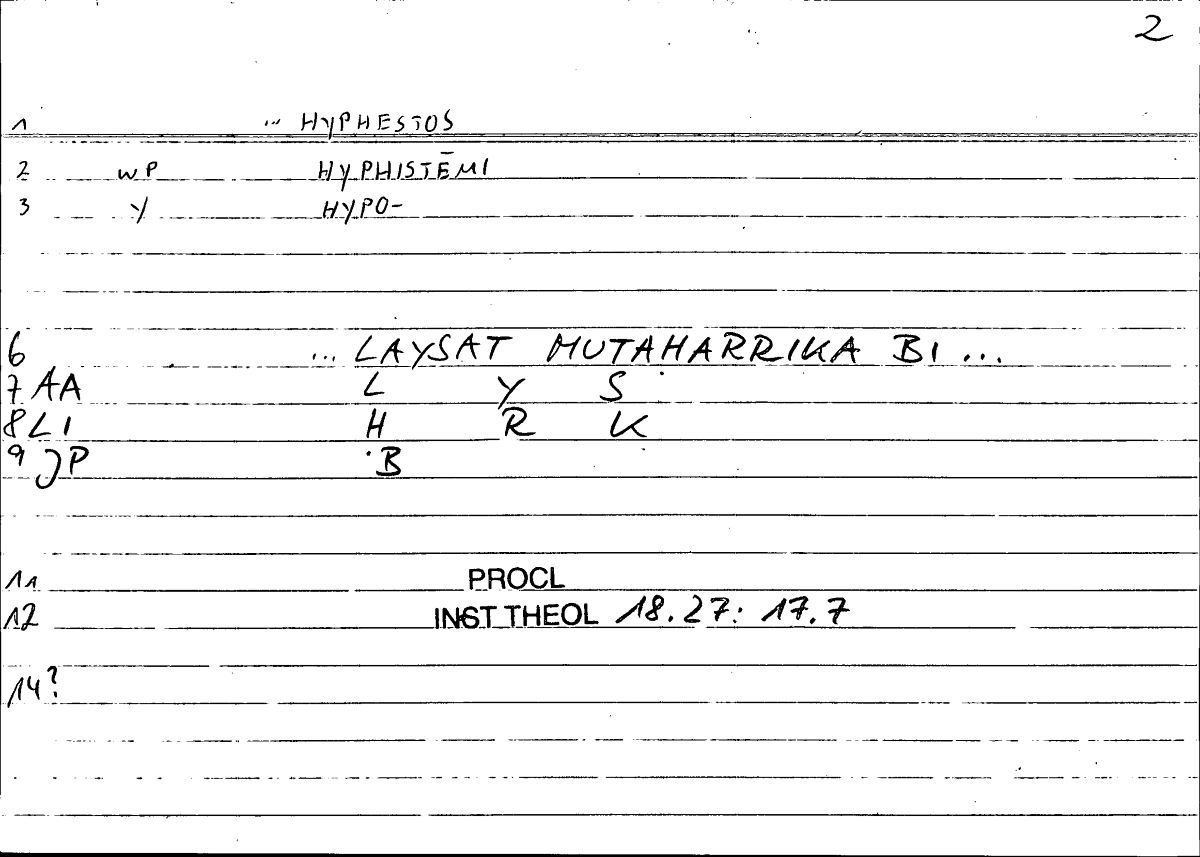 2
1 ... HYPHESTOS
2 WP HYPHISTĒMI
3 Y HYPO-
6 ... LAYSAT MUTAḤARRIKA BI ...
7 AA L Y S
8 LI Ḥ R K
9 JP B
11 PROCL
12 INST THEOL 18.27: 17.7
14?